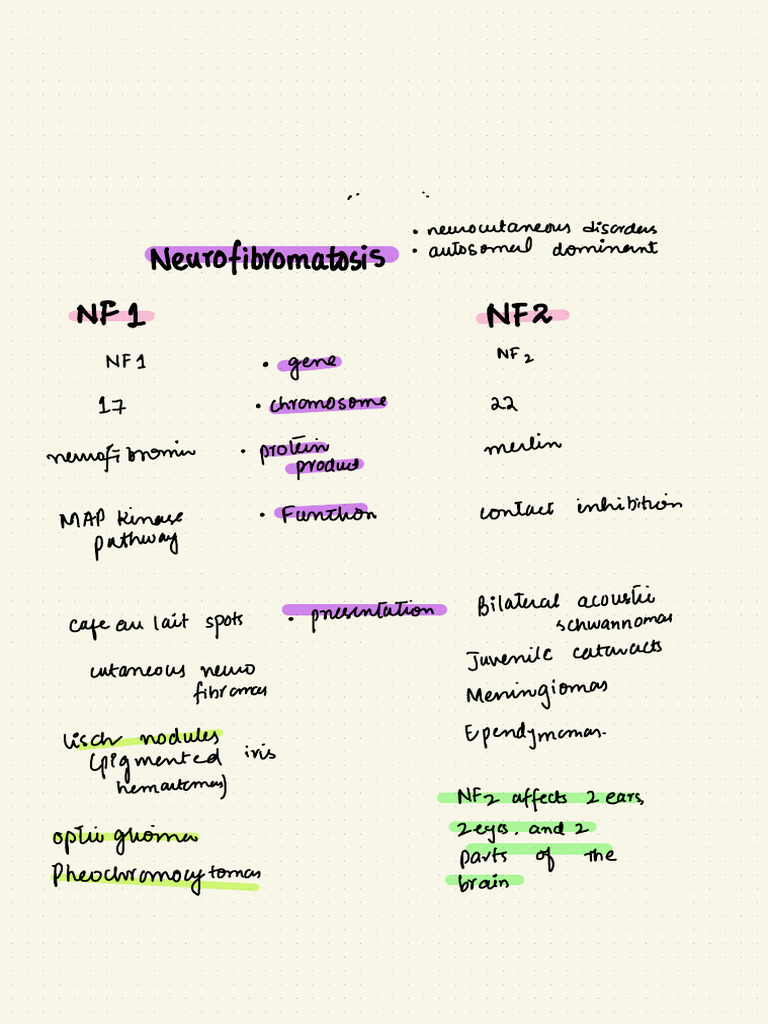 • neurocutaneous disorders
Neurofibromatosis
• autosomal dominant
NF1
NF2
NF1 • gene NF2
17 • chromosome 22
neurofibromin • protein product merlin
MAP kinase pathway • Function contact inhibition
• presentation
cafe au lait spots
cutaneous neuro
fibromas
Lisch nodules
(pigmented iris
hematomas)
optic glioma
Pheochromocytomas
Bilateral acoustic
schwannomas
Juvenile cataracts
Meningiomas
Ependymomas.
NF2 affects 2 ears,
2 eyes, and 2
parts of the
brain